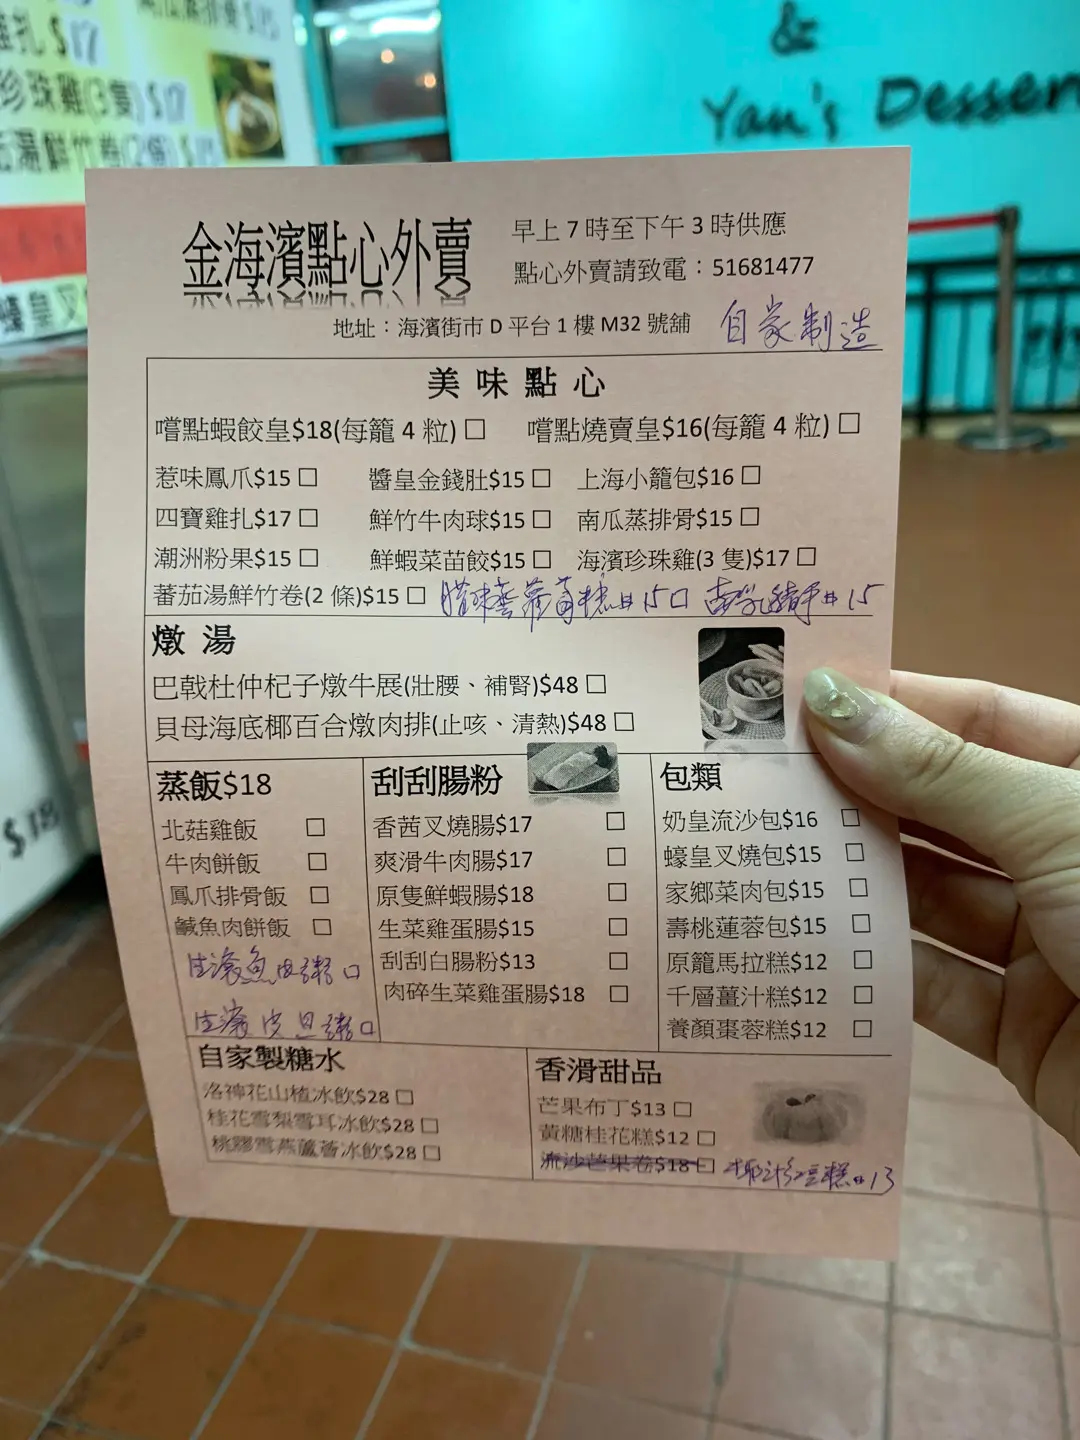 雞扎 $17
珍珠雞(3隻) $17
湯鮮竹卷(2條) $15
$18
&
Yan's Dessert
金海濱點心外賣
早上 7 時至下午 3 時供應
點心外賣請致電：51681477
地址：海濱街市 D 平台 1 樓 M32 號舖 自家制造
美味點心
嚐點蝦餃皇$18(每籠 4 粒) □ 嚐點燒賣皇$16(每籠 4 粒) □
惹味鳳爪$15 □ 醬皇金錢肚$15 □ 上海小籠包$16 □
四寶雞扎$17 □ 鮮竹牛肉球$15 □ 南瓜蒸排骨$15 □
潮洲粉果$15 □ 鮮蝦菜苗餃$15 □ 海濱珍珠雞(3 隻)$17 □
蕃茄湯鮮竹卷(2 條)$15 □ 腊味蒸蘿蔔糕$15 □ 南乳豬手$15
燉湯
巴戟杜仲杞子燉牛展(壯腰、補腎)$48 □
貝母海底椰百合燉肉排(止咳、清熱)$48 □
蒸飯$18
北菇雞飯 □
牛肉餅飯 □
鳳爪排骨飯 □
鹹魚肉餅飯 □
生滾魚肉粥 □
生滾皮旦粥 □
刮刮腸粉
香茜叉燒腸$17 □
爽滑牛肉腸$17 □
原隻鮮蝦腸$18 □
生菜雞蛋腸$15 □
刮刮白腸粉$13 □
肉碎生菜雞蛋腸$18 □
包類
奶皇流沙包$16 □
蠔皇叉燒包$15 □
家鄉菜肉包$15 □
壽桃蓮蓉包$15 □
原籠馬拉糕$12 □
千層薑汁糕$12 □
養顏棗蓉糕$12 □
自家製糖水
洛神花山楂冰飲$28 □
桂花雪梨雪耳冰飲$28 □
桃膠雪燕蘆薈冰飲$28 □
香滑甜品
芒果布丁$13 □
黃糖桂花糕$12 □
流沙芒果卷$18 □ 椰汁红豆糕$13